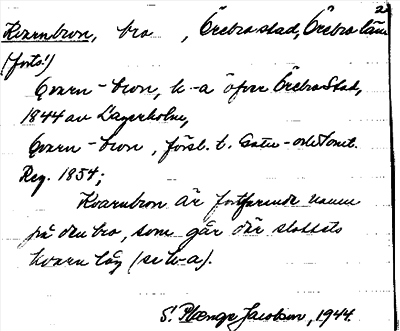 2
Kvarnbron, bro , Örebro stad, Örebro län
(forts.)
Qvarn-bron, k-a öfver Örebro Stad,
1844 av Lagerholm,
Qvarn-bron, försl. t. Gatu- och Tomt.
Reg. 1854;
Kvarnbron är fortfarande namn
på den bro, som går där slottets
kvarn låg (se k-a).
S. Plænge Jacobson, 1944.